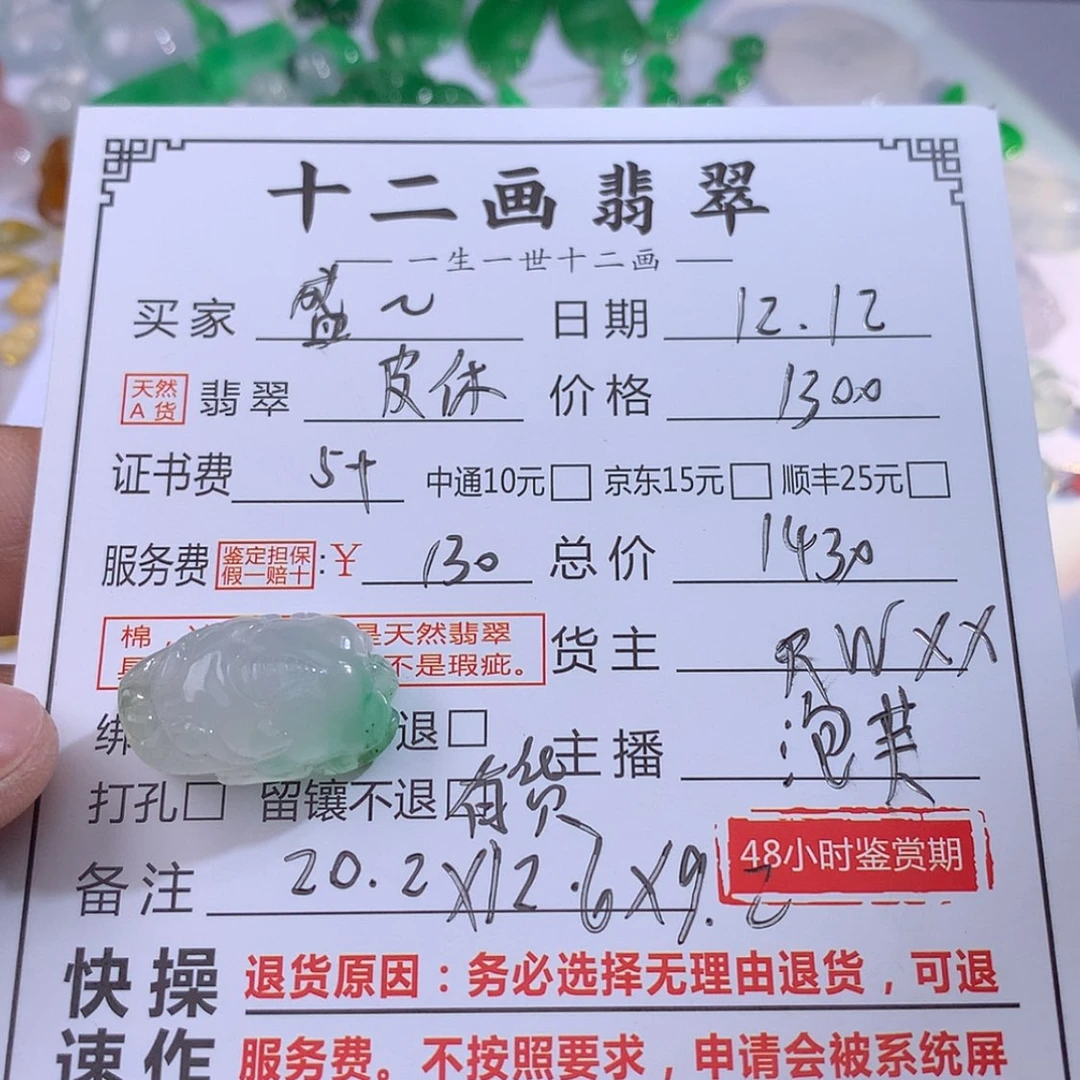 十二画翡翠
一生一世十二画
买家 盛~ 日期 12.12
天然A货 翡翠 皮休 价格 1300
证书费 5+ 中通10元□ 京东15元□ 顺丰25元□
服务费 鉴定担保假一赔十:¥ 130 总价 1430
棉， 是天然翡翠
不是瑕疵。
货主 RWXX
绑 退□ 主播 泡芙
打孔□ 留镶不退□ 有货
48小时鉴赏期
备注 20.2X12.6X9.2
快操 退货原因：务必选择无理由退货，可退
速作 服务费。不按照要求，申请会被系统屏